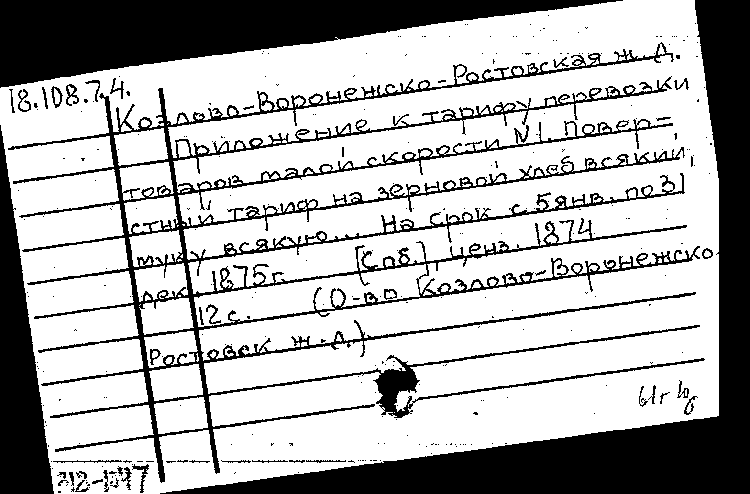 18.108.7.4.
Козлово-Воронежско-Ростовская ж. д.
Приложение к тарифу перевозки
товаров малой скорости №1. Повер-
стный тариф на зерновой хлеб всякий,
муку всякую... На срок с 5 янв. по 31
дек. 1875 г. [Спб.], ценз. 1874
12 с. (О-во Козлово-Воронежско-
Ростовск ж.д.)
61г